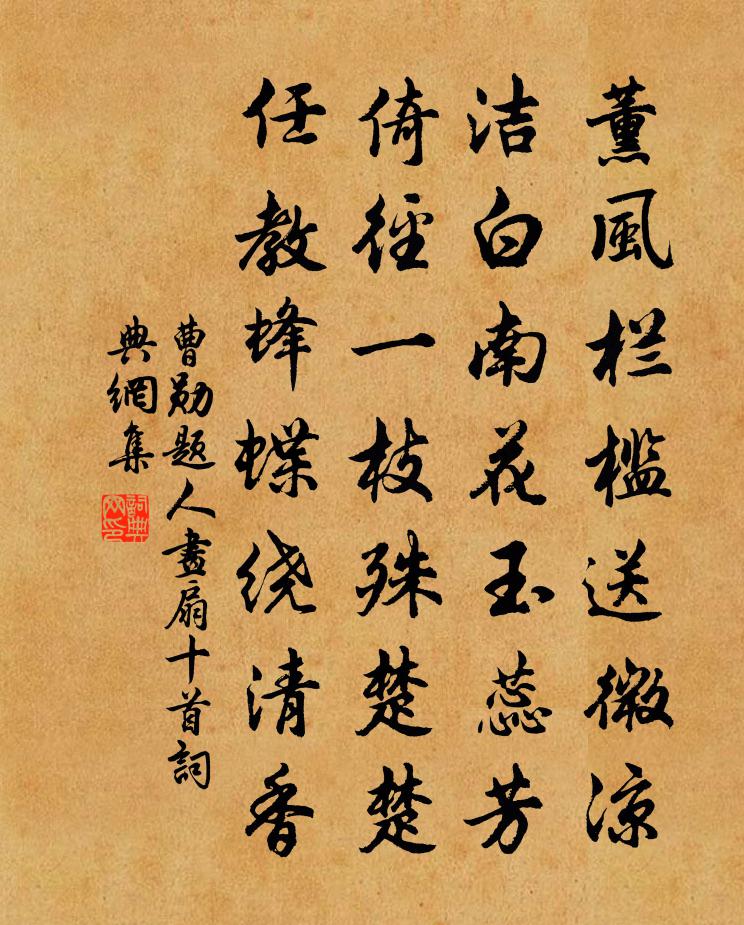 薰風栏槛送微凉
洁白南花玉蕊芳
倚徑一枝殊楚楚
任教蜂蝶绕清香
曹勛題人畫扇十首詞
典網集
詞典
网印